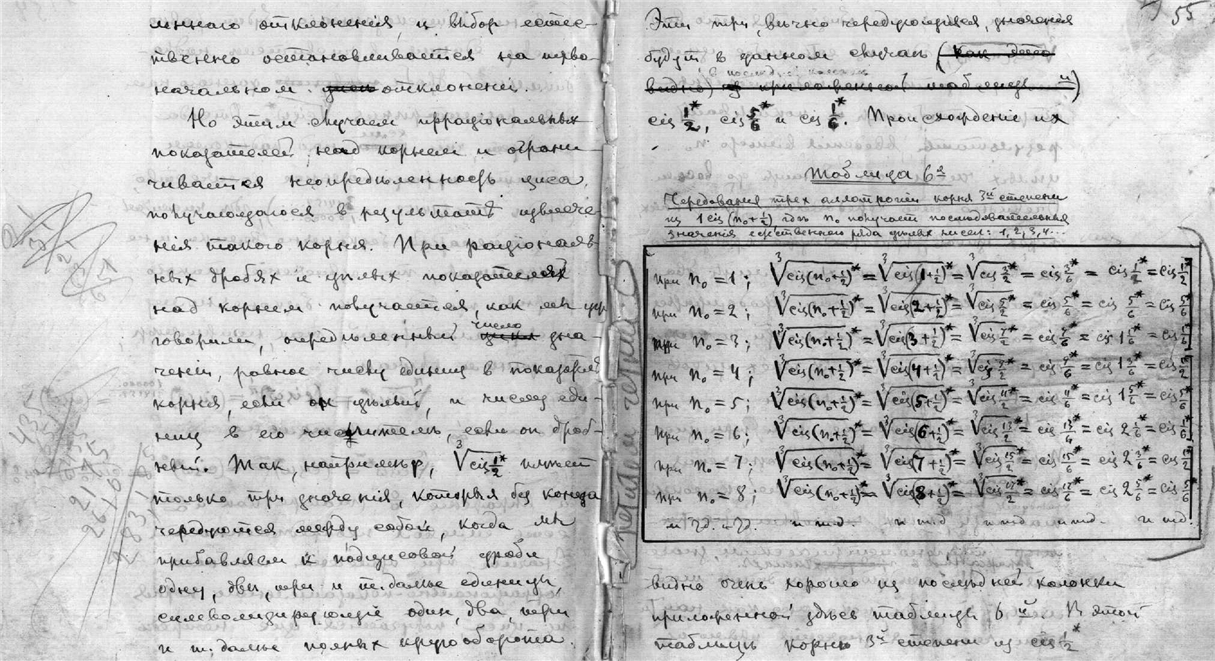 ленного отклоненія, и выбор есте-
ственно останавливается на перво-
начальном отклоненіи.
Но этам случаем ирраціональных
показателей над корнем и ограни-
чивается неопредѣленность циса,
получающагося в результатѣ извлече-
нія такого корня. При раціональ
ных дробях и цѣлых показателях
над корнем получается, как мы уже
говорили, опредѣленный число зна-
ченій, равное числу единиц в показателѣ
корня, если он цѣлый, и числу еди-
ниц в его числителѣ, если он дроб-
ный. Так, напримѣр, ∛cis ½*  имѣет
только три значенія, которыя без конца
чередуются между собой, когда мы
прибавляем к подцисовой дроби
одну, двѣ, три и т. далѣе единицы,
символизирующіе один, два, три
и т. далѣе полных кругооборота.
55
Эти три, вѣчно чередующіяся, значенія
будут в данном случаѣ (как это
видно из приложенной таблицы)
cis ½*, cis 5/6* и cis 1/6*. Происхожденіе их
Таблица 6я
Чередованія трех аллотропій корня 3й степени
из 1 cis (n₀+½) когда n₀ получает послѣдовательныя
значенія естественнаго ряда цѣлых чисел: 1, 2, 3, 4...
при n₀ = 1; ∛cis(n₀+½)* = ∛cis(1+½)* = ∛cis 3/2* = cis 3/6* = cis 1/2* = cis 1/2*
при n₀ = 2; ∛cis(n₀+½)* = ∛cis(2+½)* = ∛cis 5/2* = cis 5/6* = cis 5/6* = cis 5/6*
при n₀ = 3; ∛cis(n₀+½)* = ∛cis(3+½)* = ∛cis 7/2* = cis 7/6* = cis 1 1/6* = cis 1/6*
при n₀ = 4; ∛cis(n₀+½)* = ∛cis(4+½)* = ∛cis 9/2* = cis 9/6* = cis 1 3/6* = cis 1/2*
при n₀ = 5; ∛cis(n₀+½)* = ∛cis(5+½)* = ∛cis 11/2* = cis 11/6* = cis 1 5/6* = cis 5/6*
при n₀ = 6; ∛cis(n₀+½)* = ∛cis(6+½)* = ∛cis 13/2* = cis 13/6* = cis 2 1/6* = cis 1/6*
при n₀ = 7; ∛cis(n₀+½)* = ∛cis(7+½)* = ∛cis 15/2* = cis 15/6* = cis 2 3/6* = cis 1/2*
при n₀ = 8; ∛cis(n₀+½)* = ∛cis(8+½)* = ∛cis 17/2* = cis 17/6* = cis 2 5/6* = cis 5/6*
и т.д. и т.д. и т.д. и т.д. и т.д. и т.д.
видно очень хорошо из послѣдней колонки
приложенной здѣсь таблицы 6й. В этой
таблицѣ корню 3й степени из cis ½*